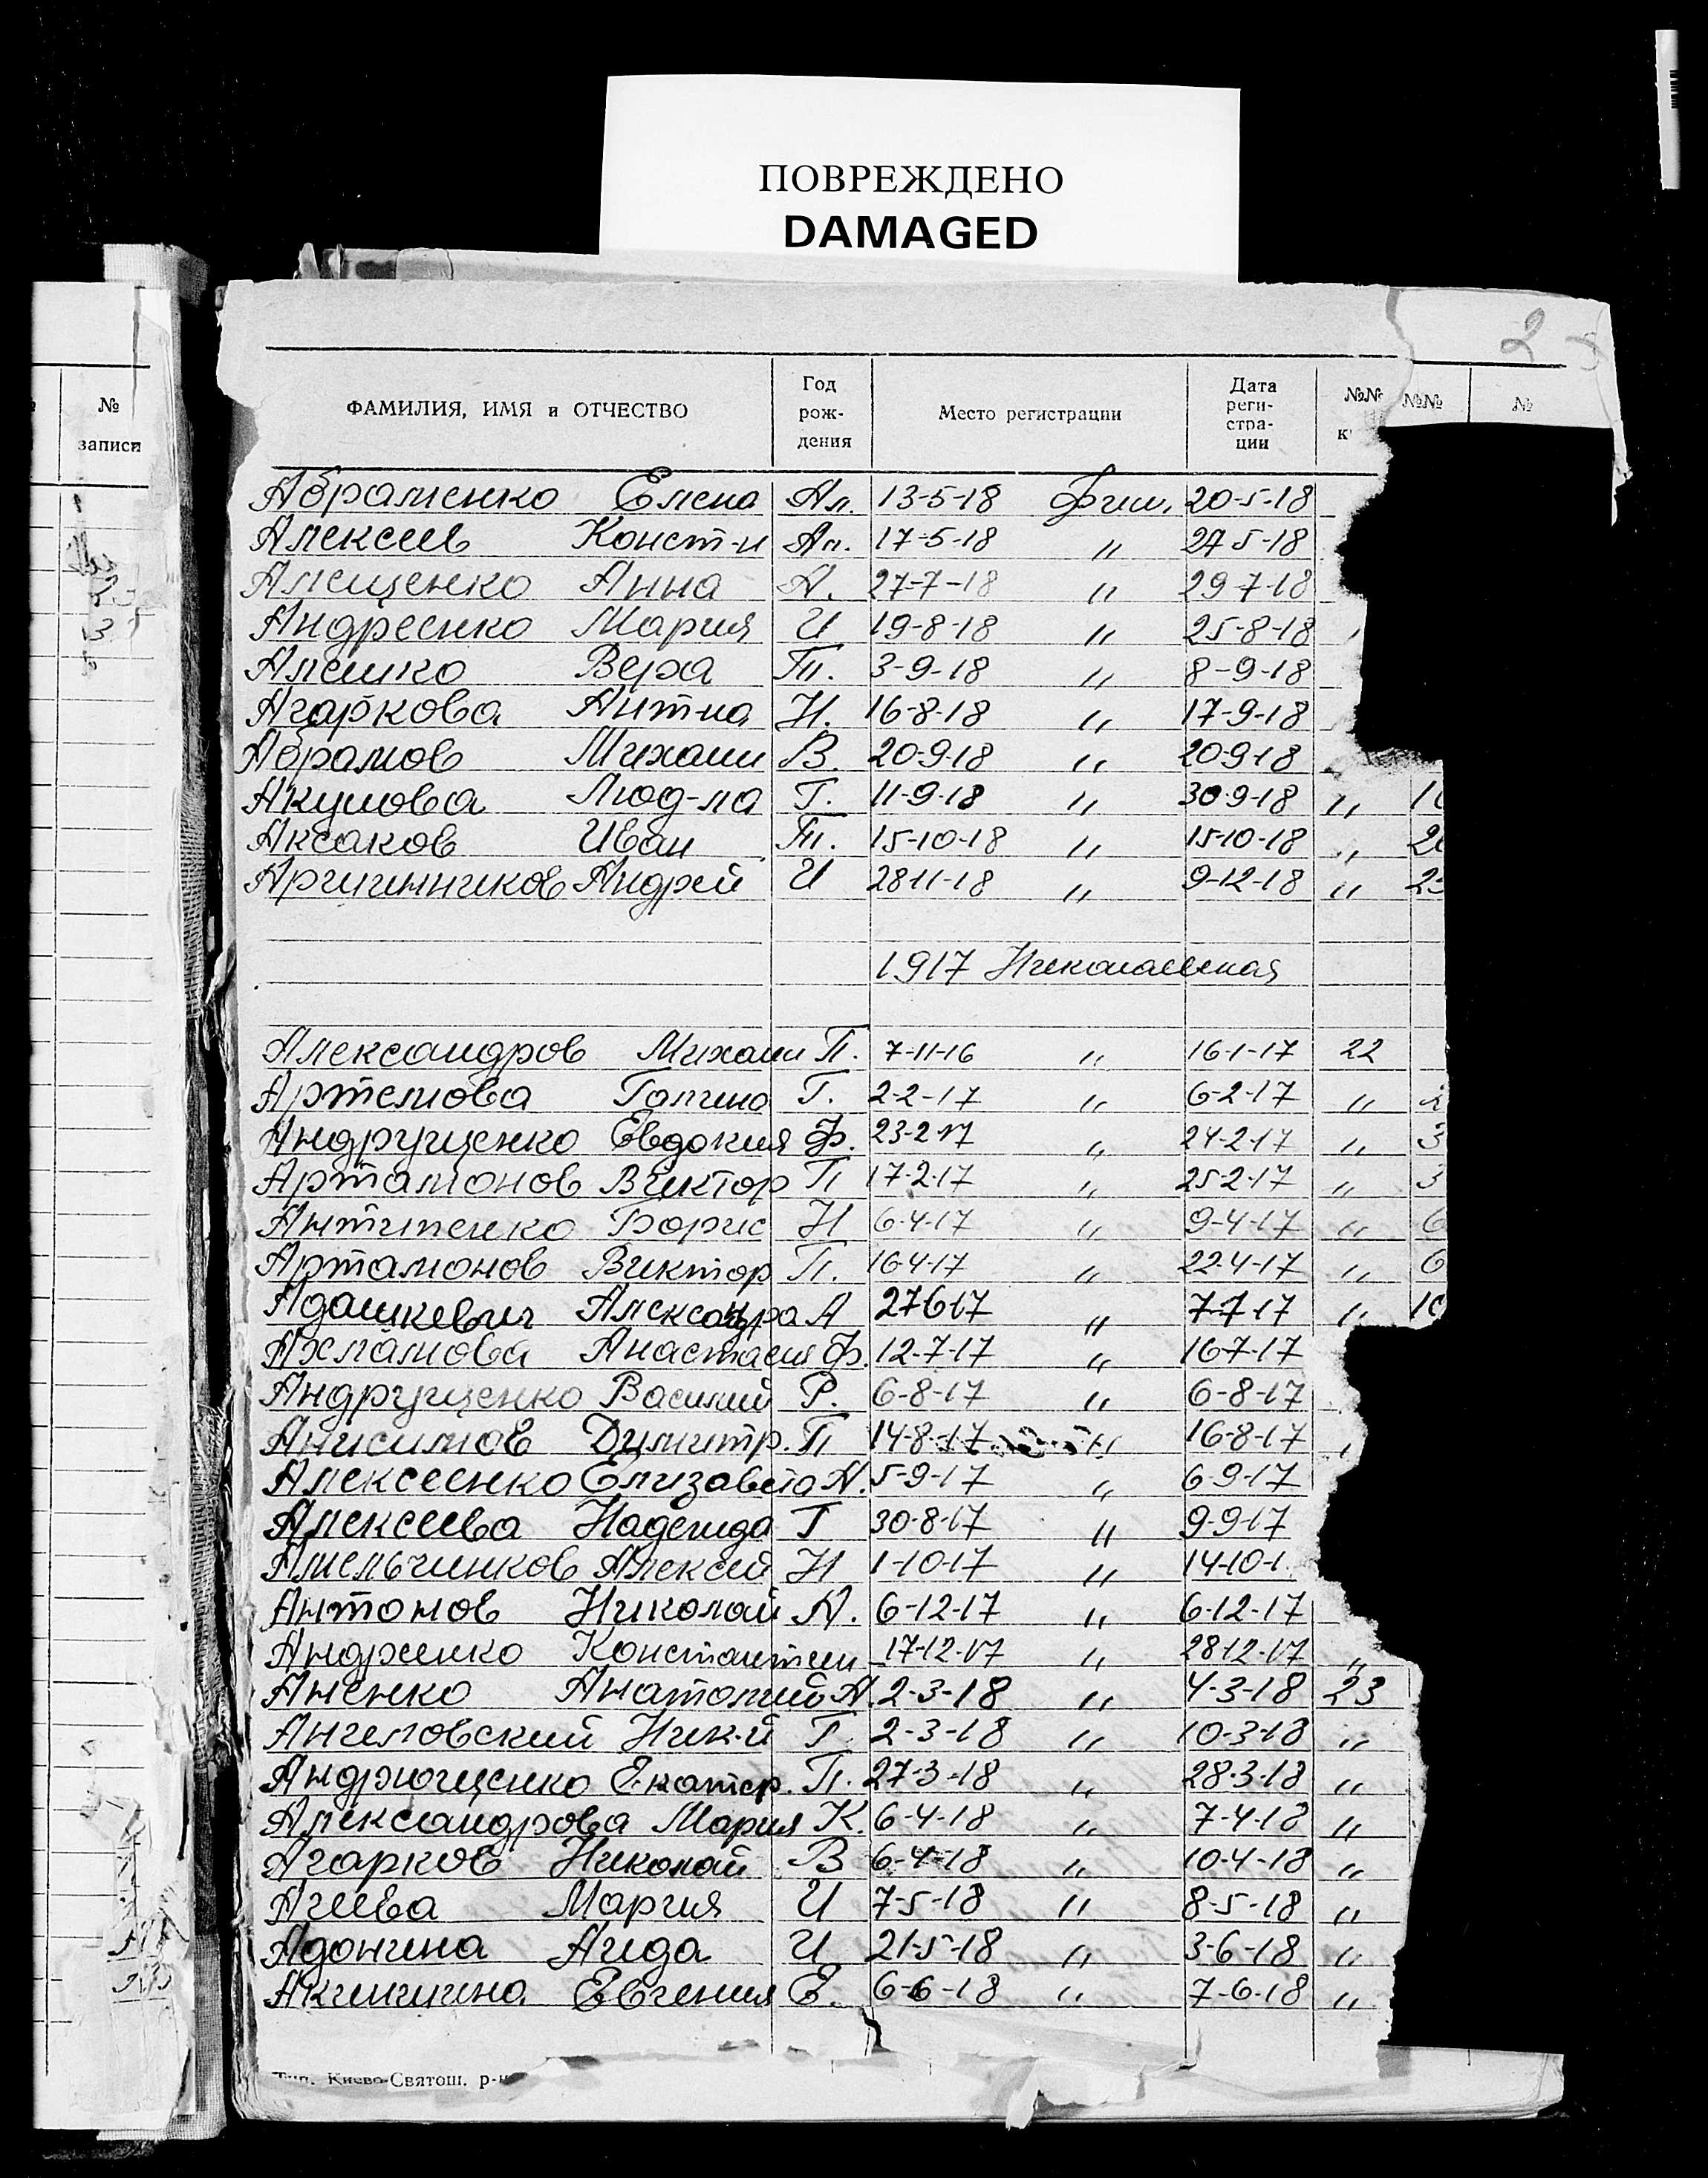 ПОВРЕЖДЕНО
DAMAGED
2
№ записи
ФАМИЛИЯ, ИМЯ и ОТЧЕСТВО Год рож- дения Место регистрации Дата реги- стра- ции №№ №№ №
Абраменко Елена Ал. 13-5-18 20-5-18
Алексеев Конст-н Ал. 17-5-18 " 27 5-18
Алещенко Анна А. 27-7-18 " 29 7-18
Андреенко Мария И 19-8-18 " 25-8-18
Алешко Вера Т. 3-9-18 " 8-9-18
Агаркова Ант-на Н. 16-8-18 " 17-9-18
Абрамов Михаил В. 20-9-18 " 20-9-18
Акулова Люд-ла Г. 11-9-18 " 30-9-18 "
Аксаков Иван Т. 15-10-18 " 15-10-18 "
Андрей И 28-11-18 " 9-12-18 "
1917 Николаевская
Александров Михаил П. 7-11-16 " 16-1-17 22
Артемова Галина Г. 2-2-17 " 6-2-17 "
Андрущенко Евдокия Ф. 23-2-17 " 24-2-17 " 3
Артамонов Виктор П 17-2-17 " 25-2-17 " 3
Антипенко Борис Н 6-4-17 " 9-4-17 " 6
Артамонов Виктор П. 16-4-17 " 22-4-17 " 6
Адашкевич Александра А 27 6-17 " 7-7-17 " 10
Анастасия Ф. 12-7-17 " 16-7-17
Андрущенко Василий Р. 6-8-17 " 6-8-17
Анисимов Димитр. П 14-8-17 " 16-8-17
Алексеенко Елизавета Н. 5-9-17 " 6-9-17
Алексеева Надежда Г 30-8-17 " 9-9-17
Амельчинков Алексей Н 1-10-17 " 14-10-1
Антонов Николай А. 6-12-17 " 6-12-17
Андреенко Константин 17-12-17 " 28-12-17 "
Аненко Анатолий А. 2-3-18 " 4-3-18 23
Ангеловский Ник-й Г. 2-3-18 " 10-3-18 "
Андрющенко Екатер. П. 27-3-18 " 28-3-18 "
Александрова Мария К. 6-4-18 " 7-4-18 "
Агарков Николай В 6-4-18 " 10-4-18 "
Агеева Мария И 7-5-18 " 8-5-18 "
Адонина Аида И 21-5-18 " 3-6-18 "
Акишина Евгения Е. 6-6-18 " 7-6-18 "
Тип. Киево-Святош. р-н